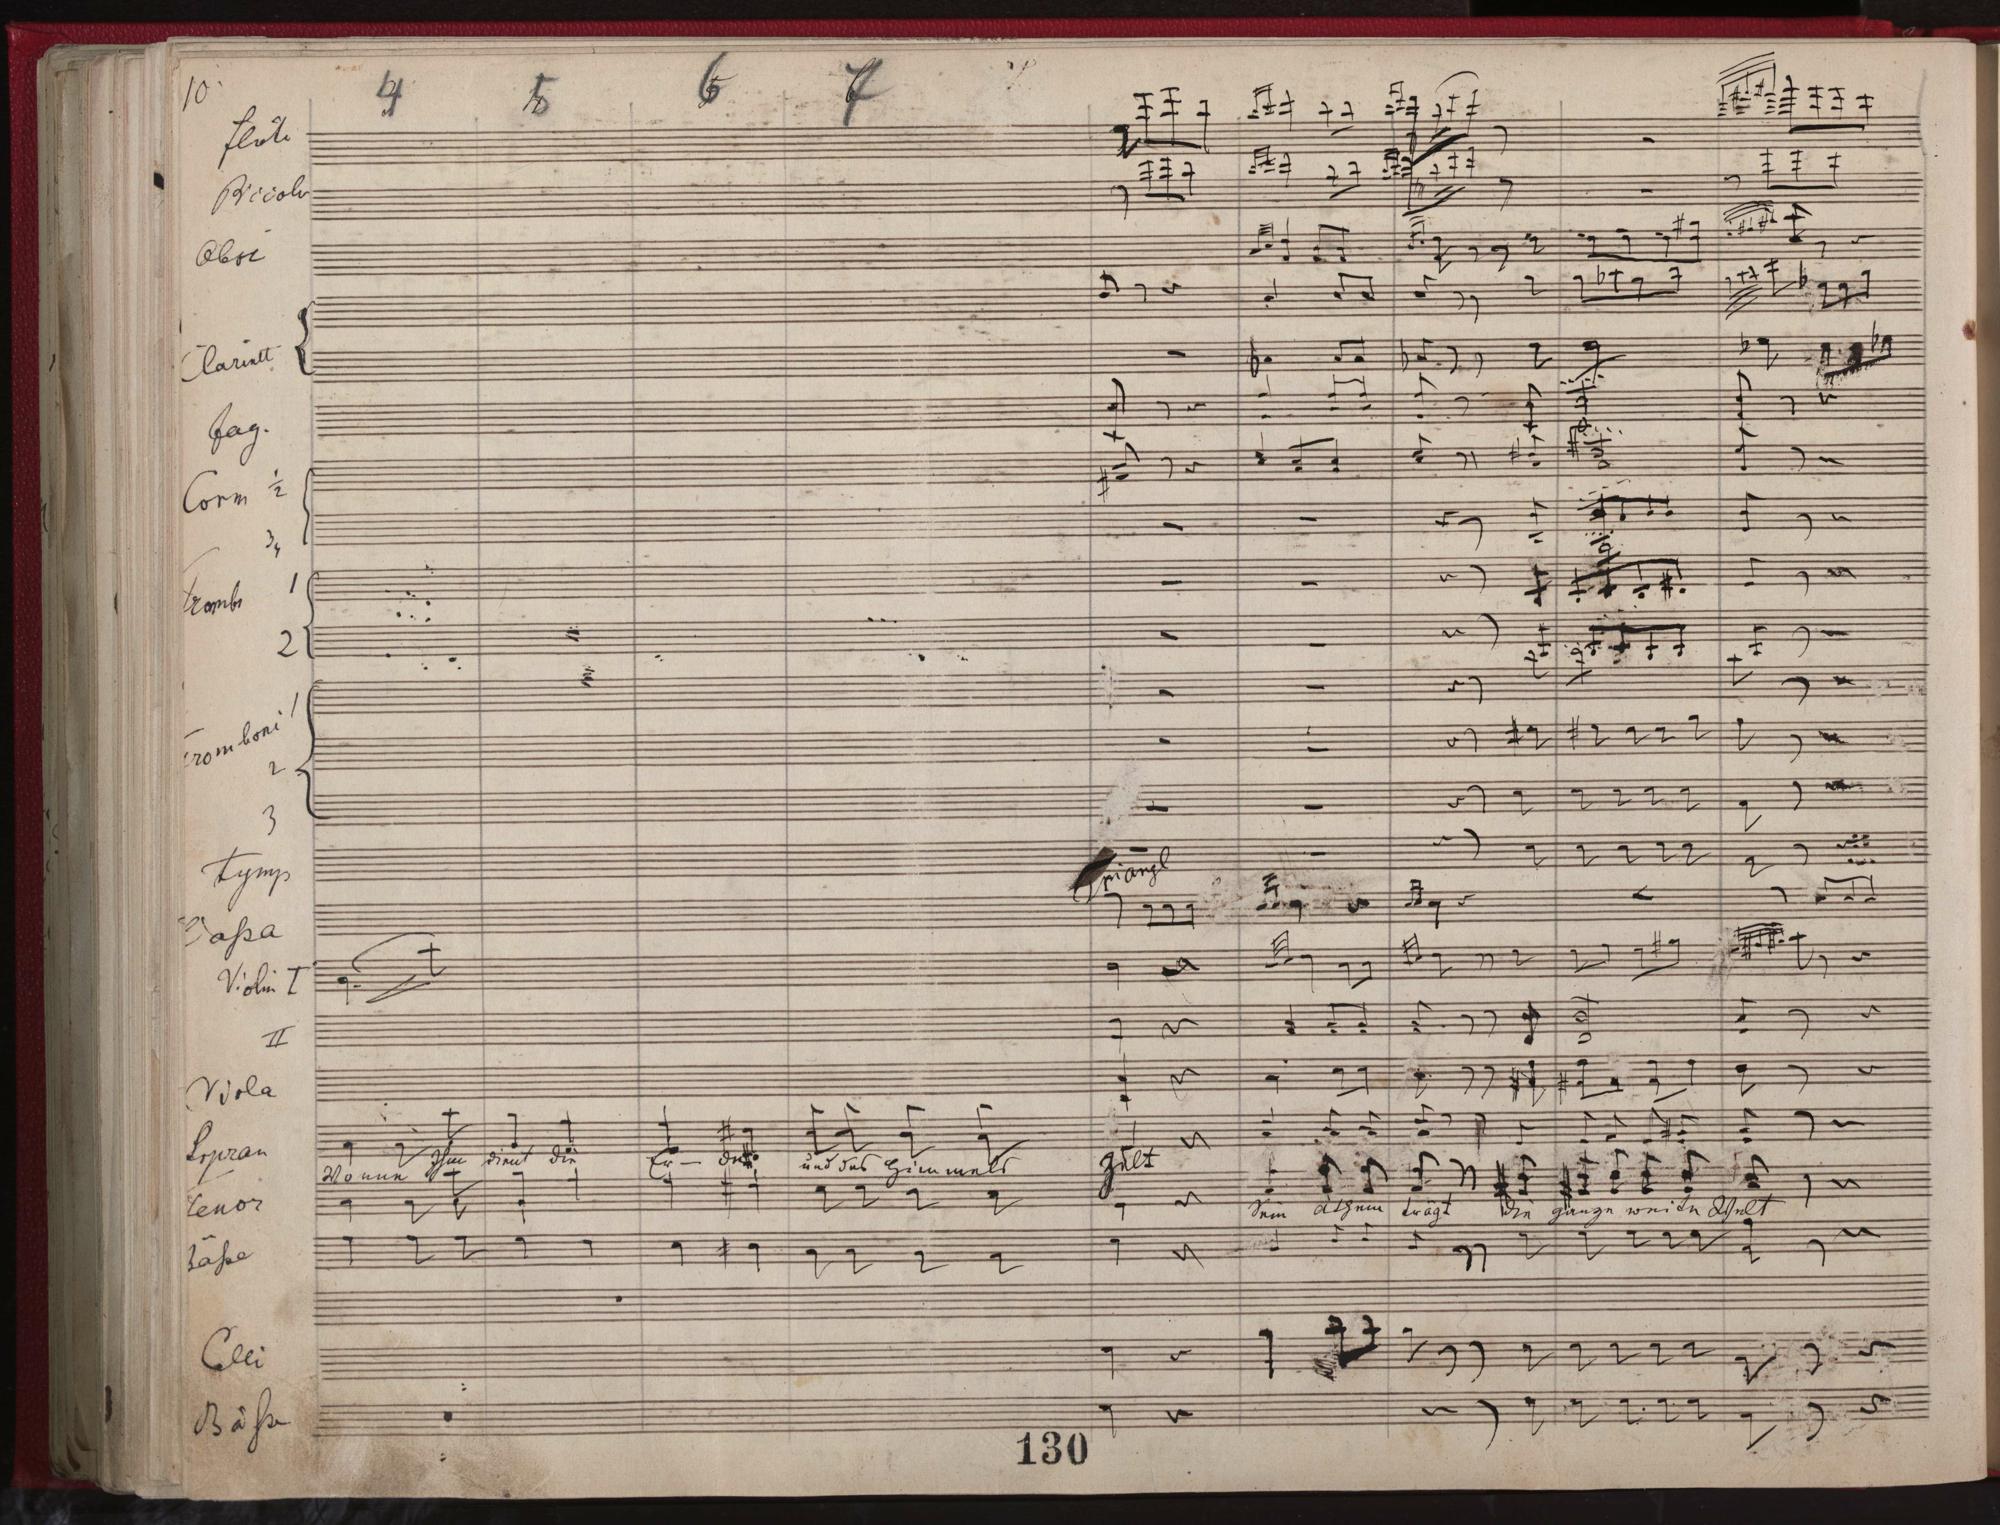 10.
4 5 6 7
Flöte
Piccolo
Oboi
Clarinett
Fag.
Corni 1/2
3/4
Trombi 1
2
Tromboni 1
2
3
Tymp
Triangl
Caßa
Violin I
II
Viola
Sopran
Wonne Ihm dient die Er - de und des Himmels Zelt
Tenor
Sein Athem trägt die ganze weite Welt
Bäße
Celli
Bäße
130